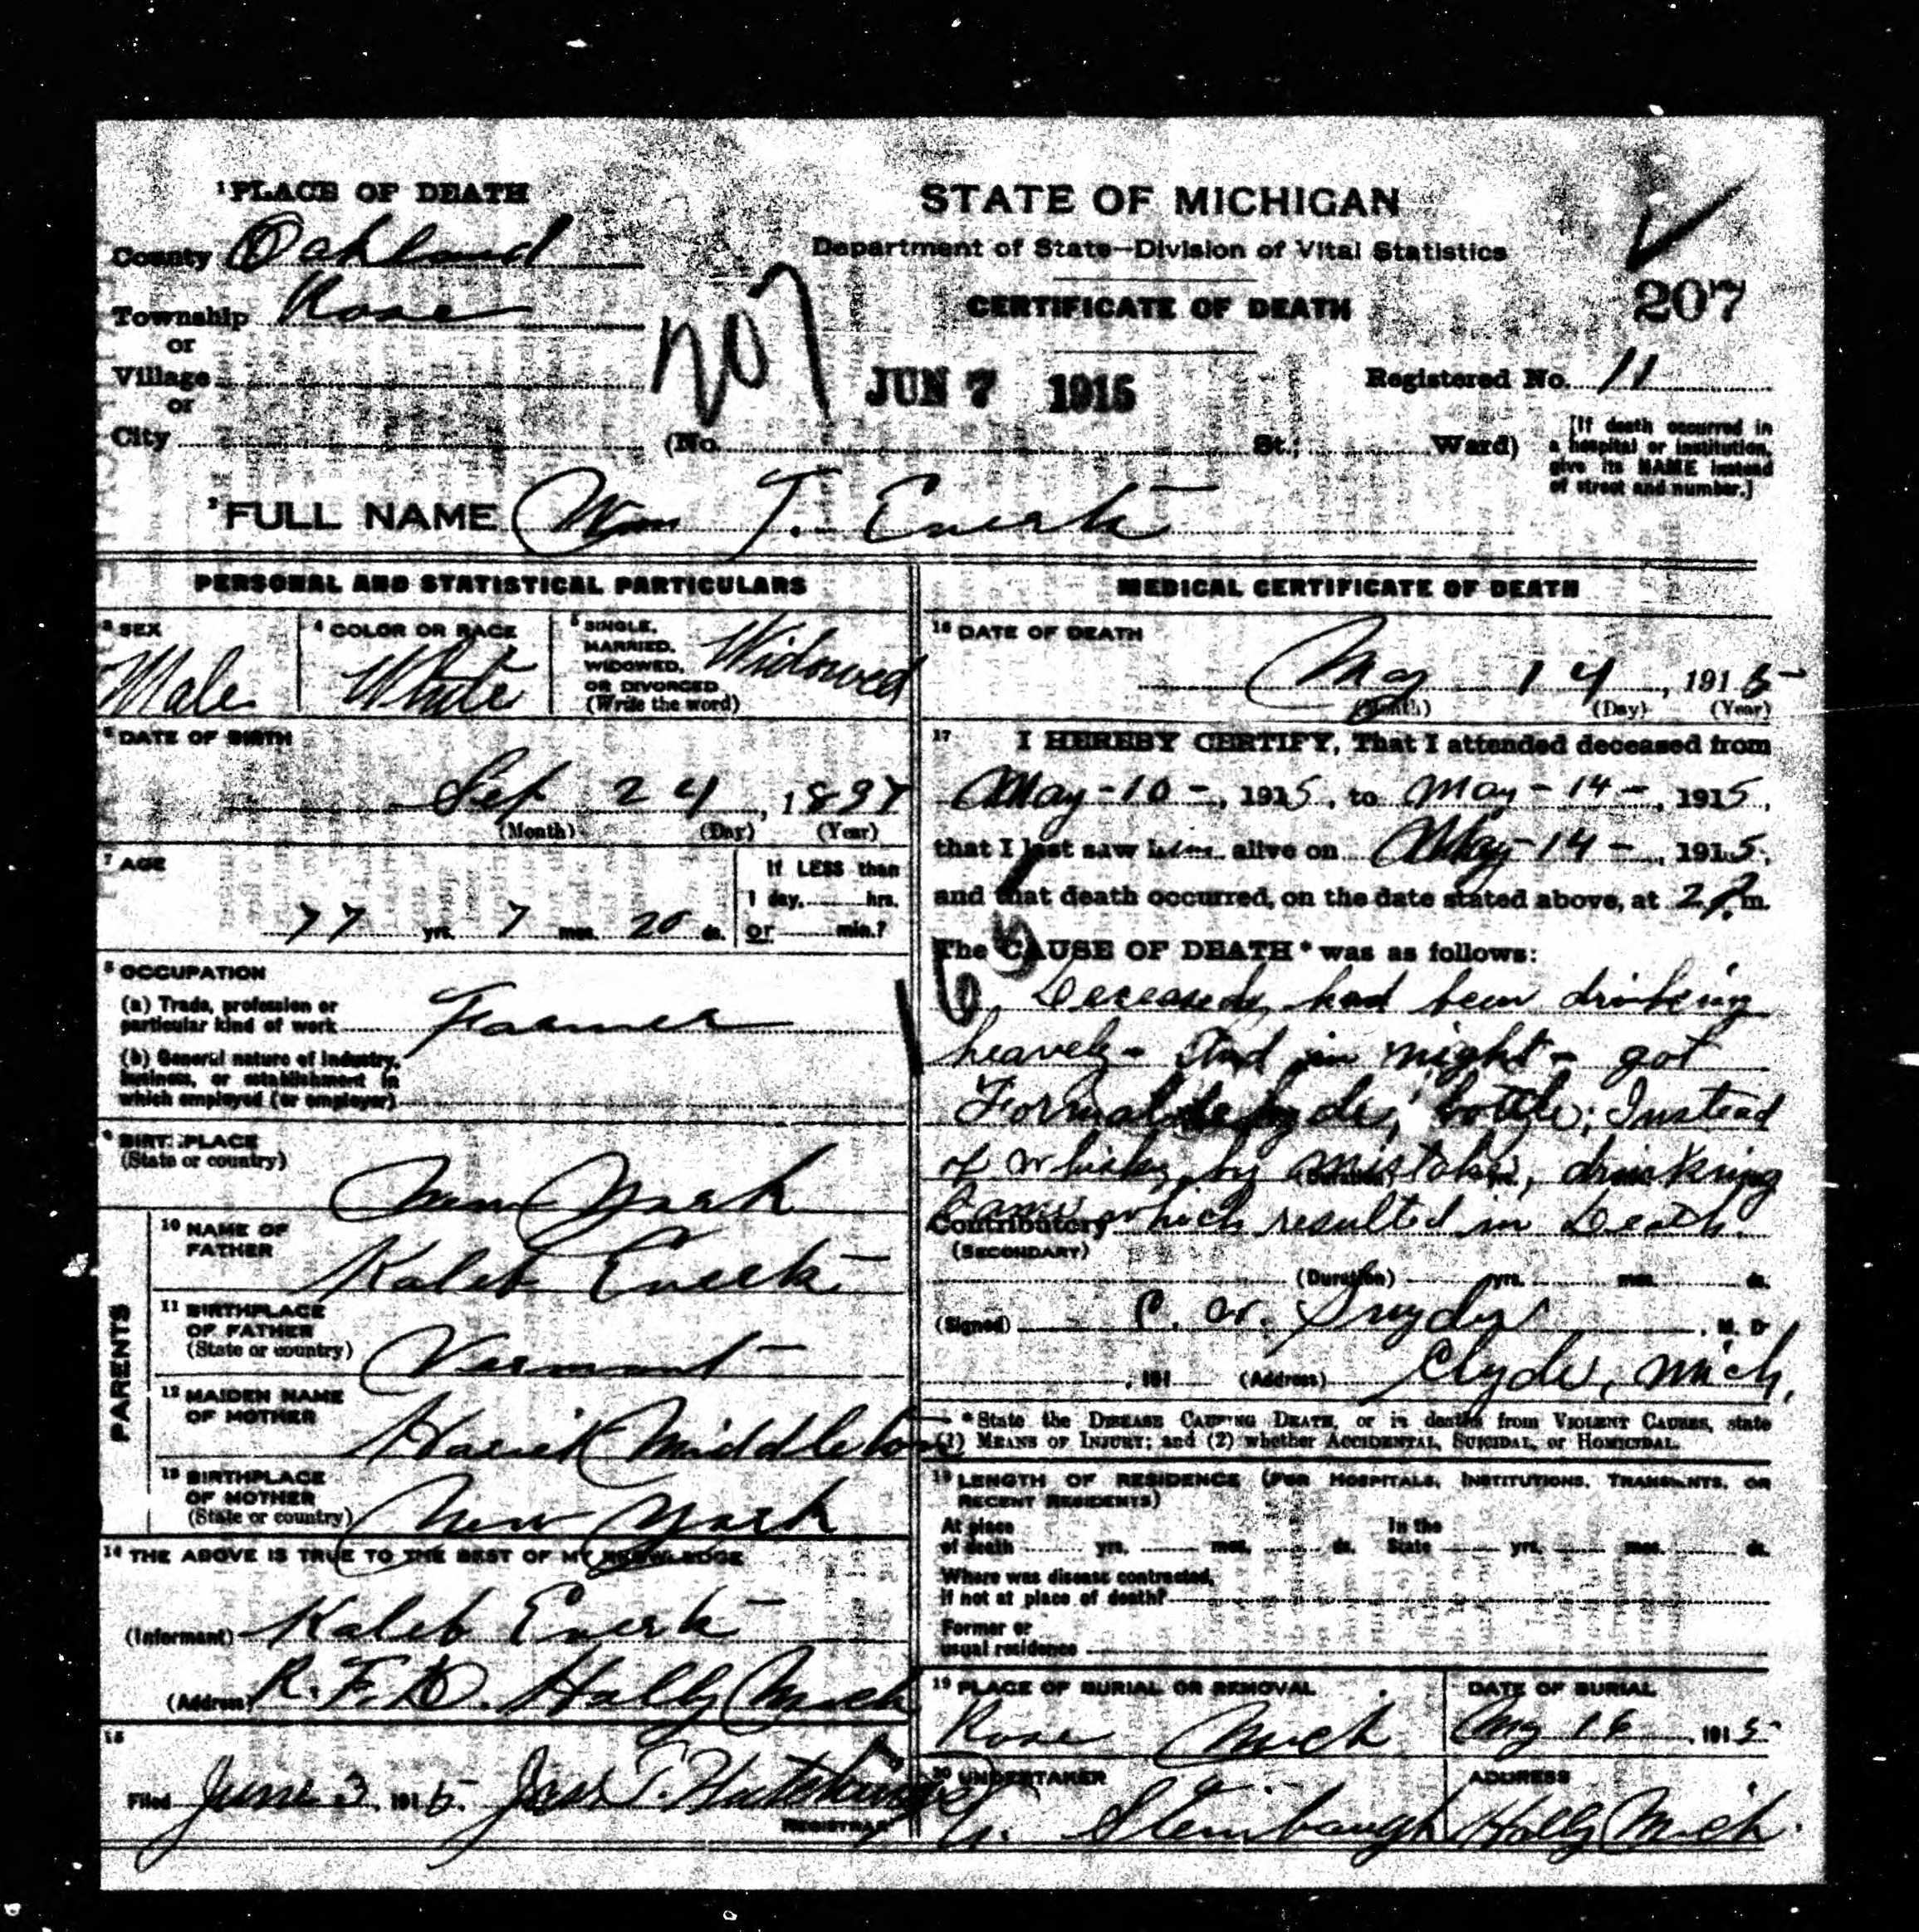 1 PLACE OF DEATH
County Oakland
Township Rose
or
Village
or
City
STATE OF MICHIGAN
Department of State—Division of Vital Statistics
CERTIFICATE OF DEATH
207
207
JUN 7 1915
Registered No. 11
(No. St.; Ward)
[If death occurred in
a hospital or institution,
give its NAME instead
of street and number.]
2 FULL NAME Wm T. Everts
PERSONAL AND STATISTICAL PARTICULARS
3 SEX
Male
4 COLOR OR RACE
White
5 SINGLE,
MARRIED,
WIDOWED,
OR DIVORCED
(Write the word)
Widowed
6 DATE OF BIRTH
Sep 24, 1837
(Month) (Day) (Year)
7 AGE
77 yrs. 7 mos. 20 ds.
If LESS than
1 day, hrs.
or min.?
8 OCCUPATION
(a) Trade, profession or
particular kind of work Farmer
(b) General nature of industry,
business, or establishment in
which employed (or employer)
9 BIRTHPLACE
(State or country)
New York
PARENTS
10 NAME OF
FATHER
Kaleb Everts
11 BIRTHPLACE
OF FATHER
(State or country)
Vermont
12 MAIDEN NAME
OF MOTHER
Hariet Middleton
13 BIRTHPLACE
OF MOTHER
(State or country)
New York
14 THE ABOVE IS TRUE TO THE BEST OF MY KNOWLEDGE
(Informant) Kaleb Everts
(Address) R.F.D. Holly Mich
15
Filed June 3, 1915. T. Hutchings
REGISTRAR
MEDICAL CERTIFICATE OF DEATH
16 DATE OF DEATH
May 14, 1915
(Month) (Day) (Year)
17 I HEREBY CERTIFY, That I attended deceased from
May-10-, 1915, to May-14-, 1915,
that I last saw him alive on May-14-, 1915,
and that death occurred, on the date stated above, at 2 P.m.
The CAUSE OF DEATH* was as follows:
Deceased, had been drinking
heavely- And in night- got
Formaldehyde, bottle; Instead
of Whisky, by mistake, drinking
(Duration)
Same which resulted in Death.
Contributory
(SECONDARY)
(Duration) yrs. mos. ds.
(Signed) C. W. Snyder, M. D
, 191 (Address) Clyde, Mich,
*State the DISEASE CAUSING DEATH, or in deaths from VIOLENT CAUSES, state
(1) MEANS OF INJURY; and (2) whether ACCIDENTAL, SUICIDAL, or HOMICIDAL.
18 LENGTH OF RESIDENCE (FOR HOSPITALS, INSTITUTIONS, TRANSIENTS, OR
RECENT RESIDENTS)
At place
of death yrs. mos. ds.
In the
State yrs. mos. ds.
Where was disease contracted,
if not at place of death?
Former or
usual residence
19 PLACE OF BURIAL OR REMOVAL
Rose Mich
DATE OF BURIAL
May 16, 1915
20 UNDERTAKER
Steinbaugh
ADDRESS
Holly Mich.